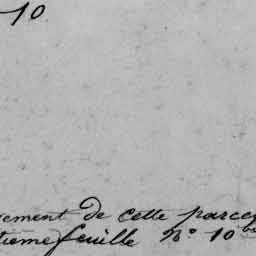 10
ement de cette parce
tieme feuille N° 10 bis